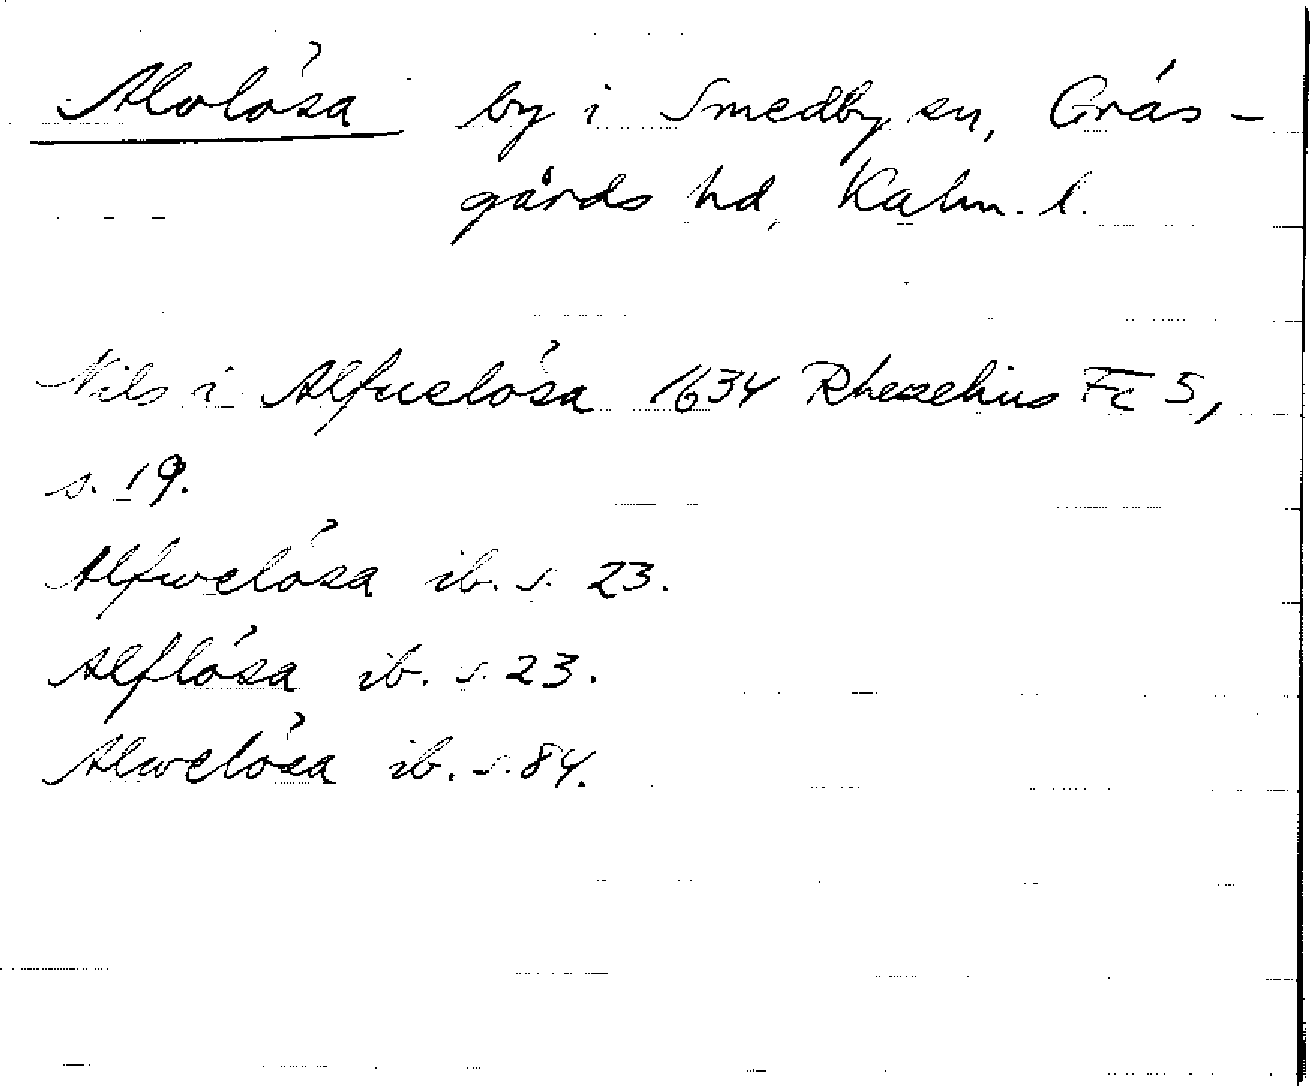 Alvlösa by i Smedby sn, Grås-
gårds hd, Kalm. l.
Nils i Alfuelösa 1634 Rhezelius Fc 5,
s. 19.
Alfwelösa ib. s. 23.
Alflösa ib. s. 23.
Alwelösa ib. s. 84.